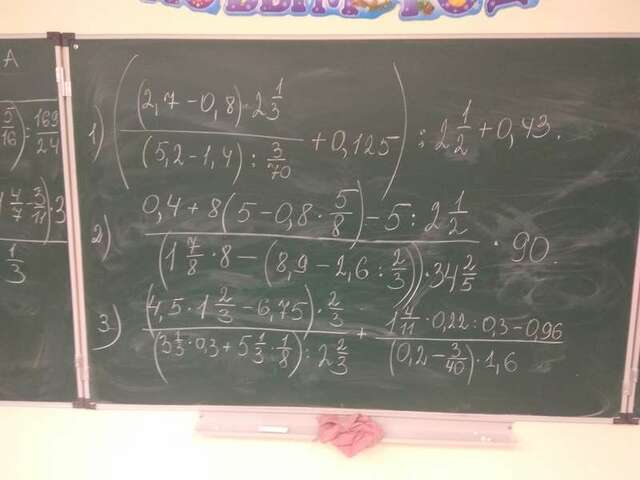 НОВЫМ ГОДО
A
5/16) : 169/24
4/7 - 3/11) · 3
1/3
1) ((2,7 - 0,8) · 2 1/3 / (5,2 - 1,4) : 3/70 + 0,125) : 2 1/2 + 0,43.
2) 0,4 + 8(5 - 0,8 · 5/8) - 5 : 2 1/2 / (1 7/8 · 8 - (8,9 - 2,6 : 2/3)) · 34 2/5 · 90.
3) (4,5 · 1 2/3 - 6,75) · 2/3 / (3 1/3 · 0,3 + 5 1/3 · 1/8) : 2 2/3 + 1 4/11 · 0,22 : 0,3 - 0,96 / (0,2 - 3/40) · 1,6